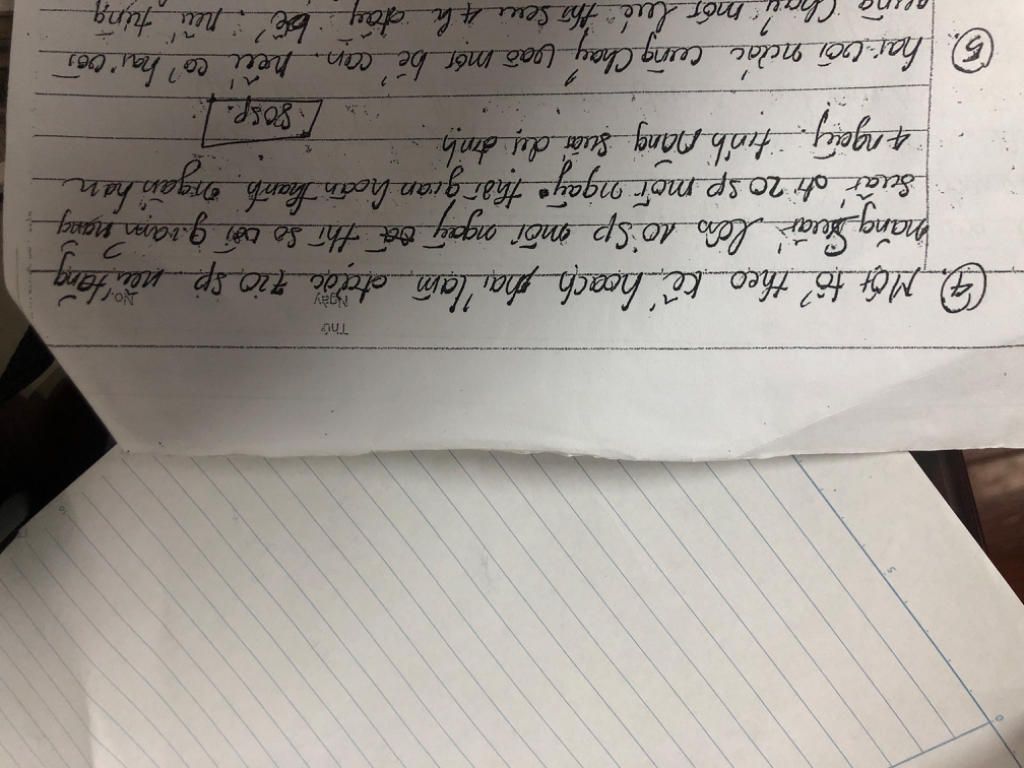 Thứ
Ngày
No.
④. Một tổ theo kế hoạch phải làm được 720 sp nếu tăng
năng suất lên 10 sp mỗi ngày thì so với giảm năng
suất đi 20 sp mỗi ngày thời gian hoàn thành ngắn hơn
4 ngày. tính năng suất dự định
80 sp.
⑤. hai vòi nước cùng chảy vào một bể cạn. nếu cả hai vòi
cùng chảy một lúc thì sau 4h đầy bể. nếu từng